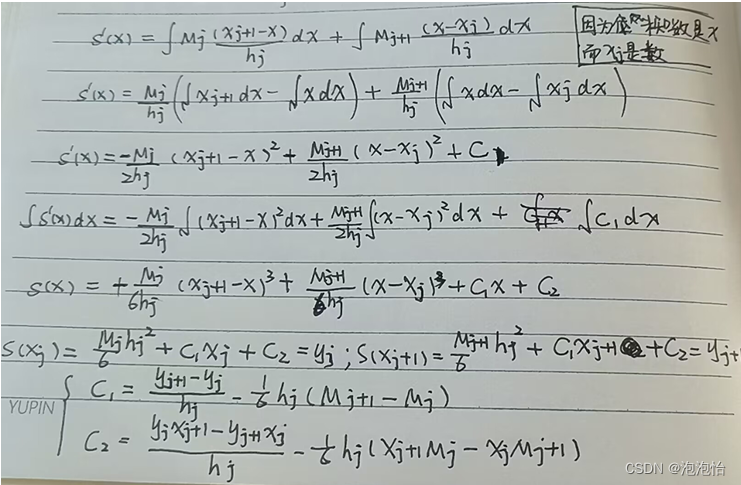 s'(x) = ∫Mj (xj+1-x)/hj dx + ∫Mj+1 (x-xj)/hj dx
因为 数是x
而xj是数
s'(x) = Mj/hj (∫xj+1 dx - ∫x dx) + Mj+1/hj (∫x dx - ∫xj dx)
s'(x) = -Mj/2hj (xj+1-x)² + Mj+1/2hj (x-xj)² + C
∫s'(x)dx = -Mj/2hj ∫(xj+1-x)²dx + Mj+1/2hj ∫(x-xj)²dx + ∫C₁dx
s(x) = +Mj/6hj (xj+1-x)³ + Mj+1/6hj (x-xj)³ + C₁x + C₂
S(xj) = Mjhj²/6 + C₁xj + C₂ = yj ; S(xj+1) = Mj+1/6 hj² + C₁xj+1 + C₂ = yj+
{ C₁ = (yj+1-yj)/hj - 1/6 hj (Mj+1-Mj)
C₂ = (yjxj+1-yj+1xj)/hj - 1/6 hj (xj+1Mj-xjMj+1)
YUPIN
CSDN @泡泡怡